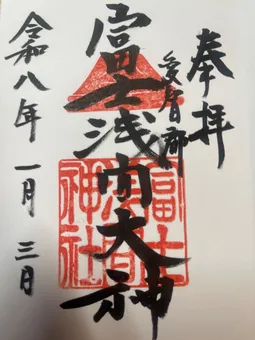 奉拝
愛智郡
富士浅间大神
富士浅間神社
令和八年一月三日